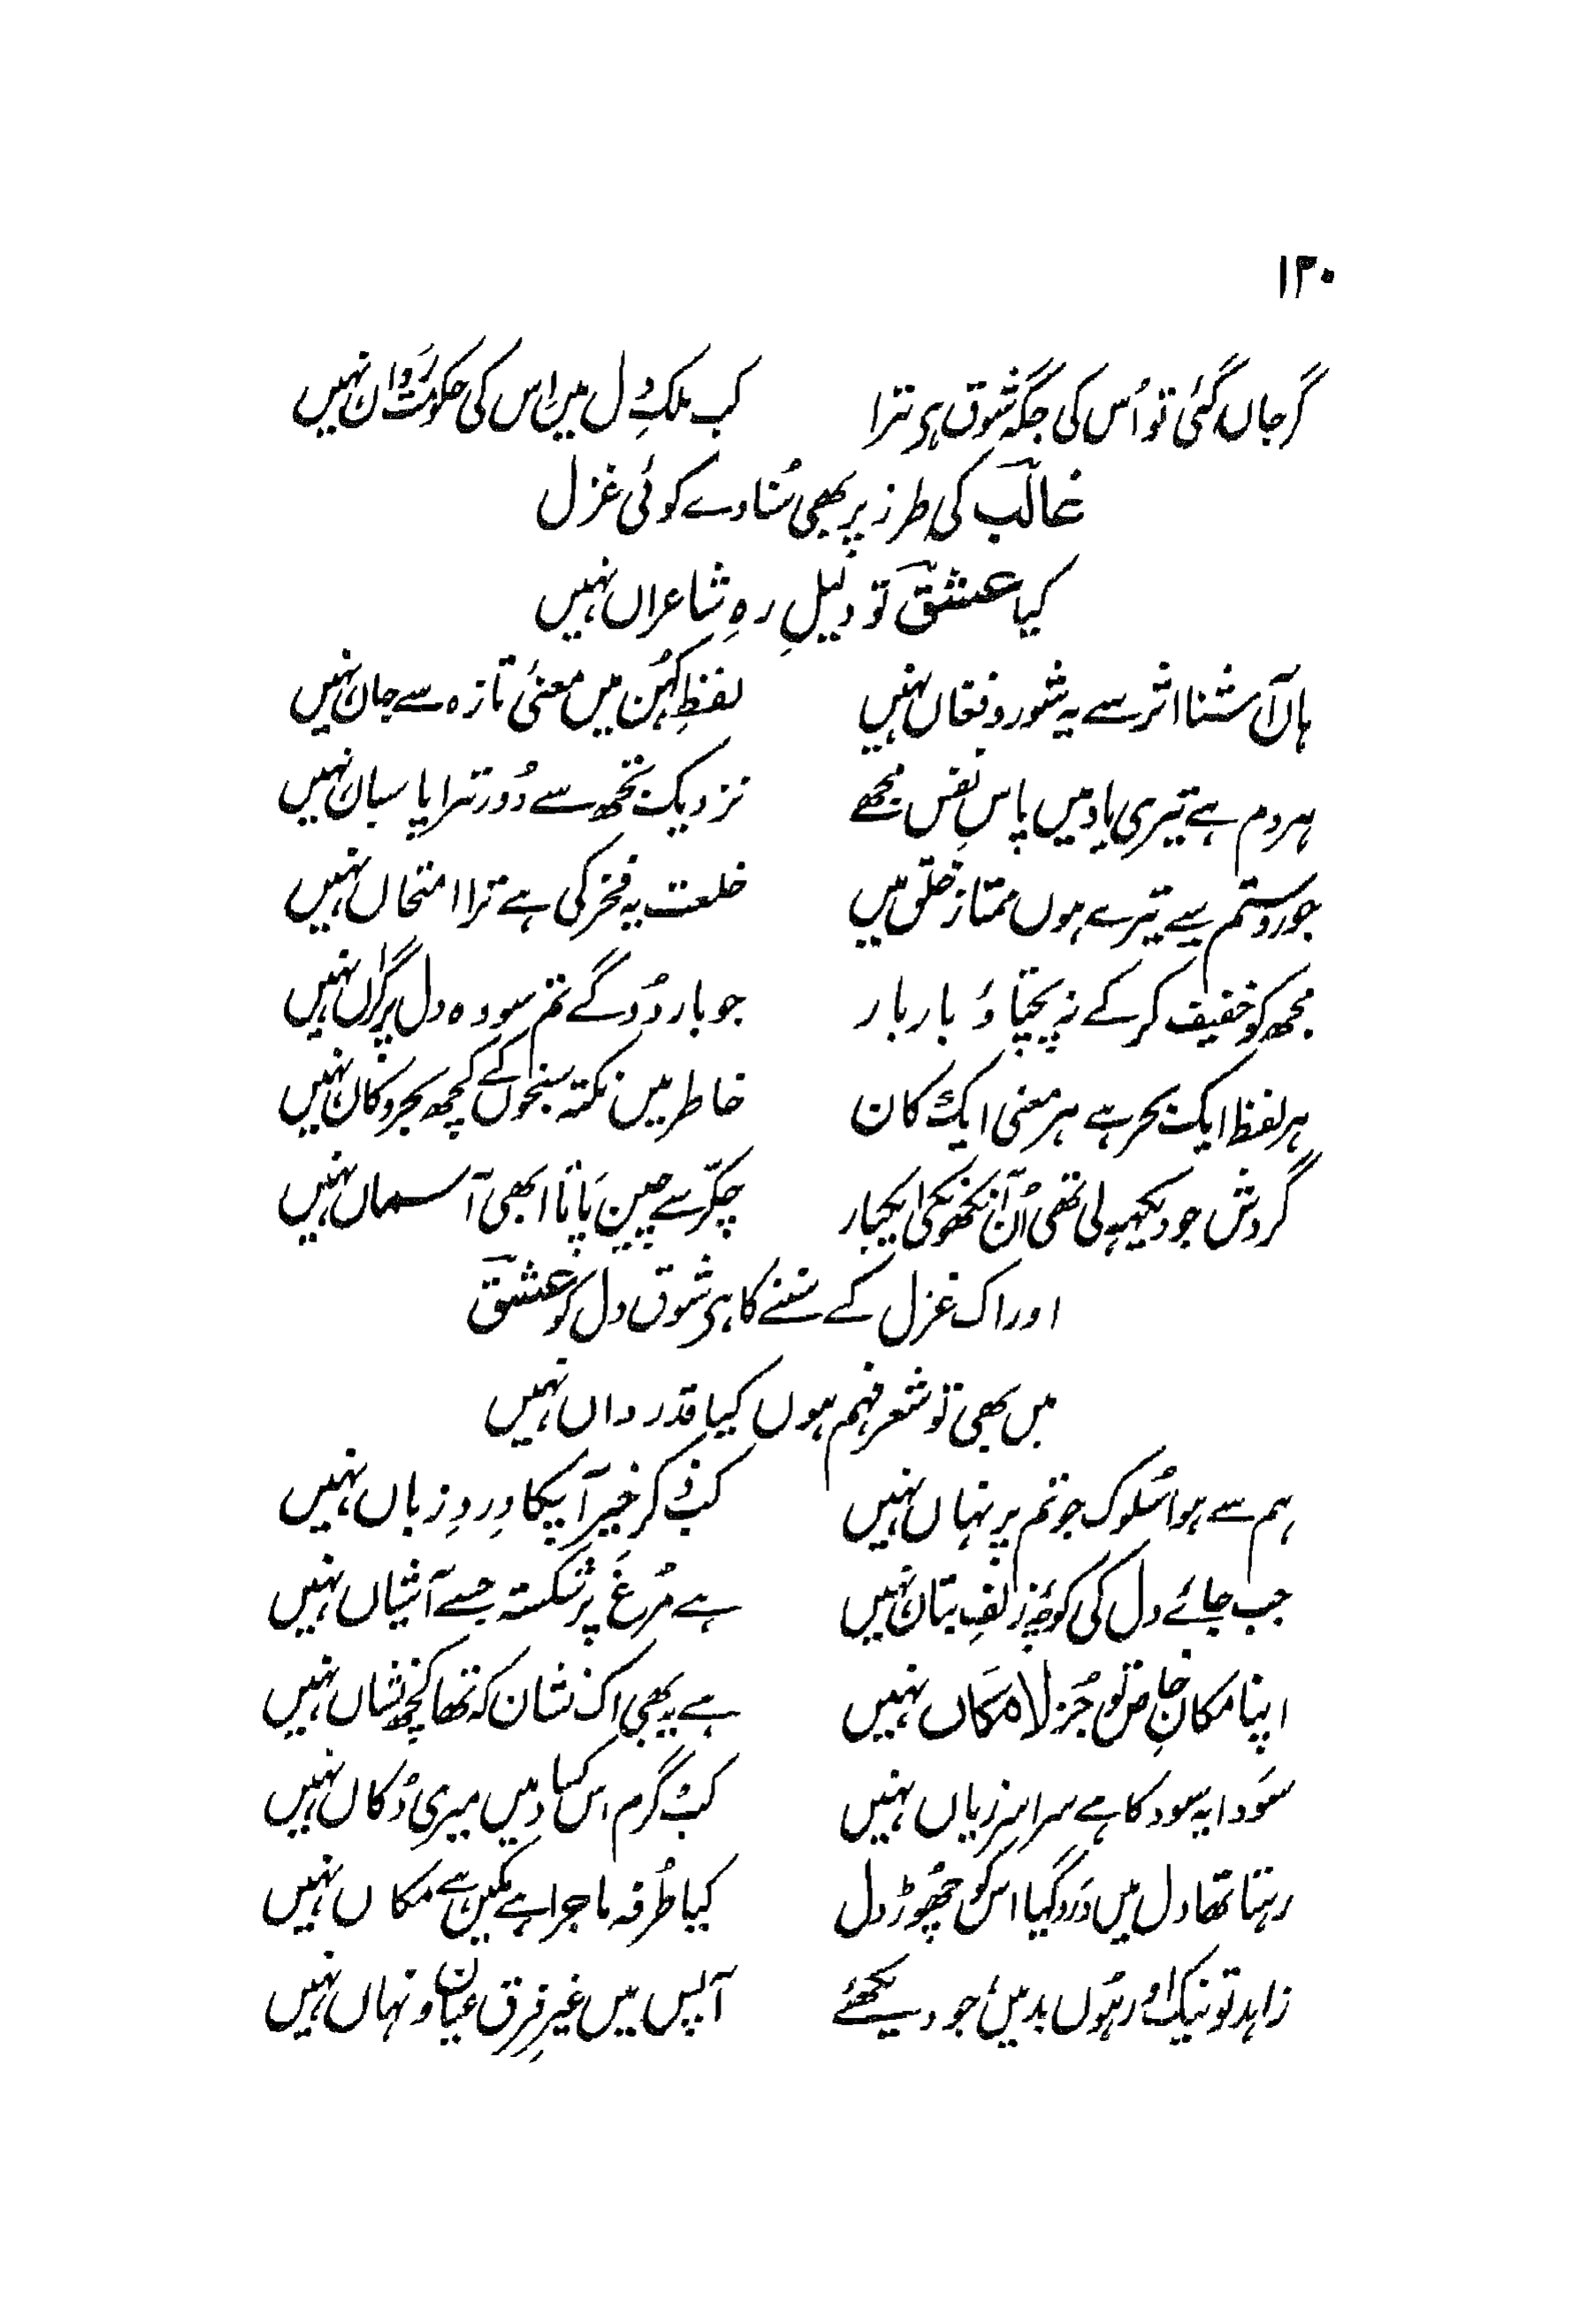 ۱۳۰
گر جاں گئی تو اُس کی جگہ شوق ہی ترا کب ملکِ دل میں اس کی حکومت رَواں نہیں
غالب کی طرز پر بھی سُنا دے کوئی غزل
کیا عشق تو دلیلِ رہِ شاعراں نہیں
ہاں آشنا اثر سے یہ شور و فغاں نہیں لفظِ کہُن میں معنیٔ تازہ سے جان نہیں
ہر دم ہے تیری یاد میں پاسِ نفس مجھے نزدیک تجھ سے دُور ترا پاسبان نہیں
جور و ستم سے تیرے ہوں ممتاز خلق میں خلعت یہ فخر کی ہے ترا امتحاں نہیں
مجھ کو خفیف کر کے نہ پچتاؤ بار بار جو بار دُو گے تم سو وہ دل پر گراں نہیں
ہر لفظ ایک بحر ہے ہر معنی ایک کان خاطر میں نکتہ سنجوں کے کچھ بحر و کان نہیں
گردش جو دیکھ لی تھی اُن آنکھونکی ایکبار چکّر سے چین پاتا ابھی آسماں نہیں
اور اک غزل کے سننے کا ہی شوق دل کو عشق
میں بھی تو شعر فہم ہوں کیا قدر داں نہیں
ہم سے ہوا سُلوک جو تم پر نہاں نہیں کب ذکرِ خیر آپکا وِردِ زباں نہیں
جب جائے دل کی کوچۂ زلفِ بتان نہیں ہے مُرغَ پر شکستہ جسے آشیاں نہیں
اپنا مکانِ خاص تو جُز لامکَاں نہیں ہے یہ بھی اک نشان کہ تھا کچھ نشاں نہیں
سَودا یہ سود کا ہے سراسر زیاں نہیں کب گرم اس کساد میں میری دُکاں نہیں
رہتا تھا دل میں درد گیا اس کو چھوڑ دل کیا طُرفہ ماجرا ہے مکین ہے مکاں نہیں
زاہد تو نیک اور ہُوں بد میں جو دیکھئے آپس میں غیرِ فرق عیان و نہاں نہیں